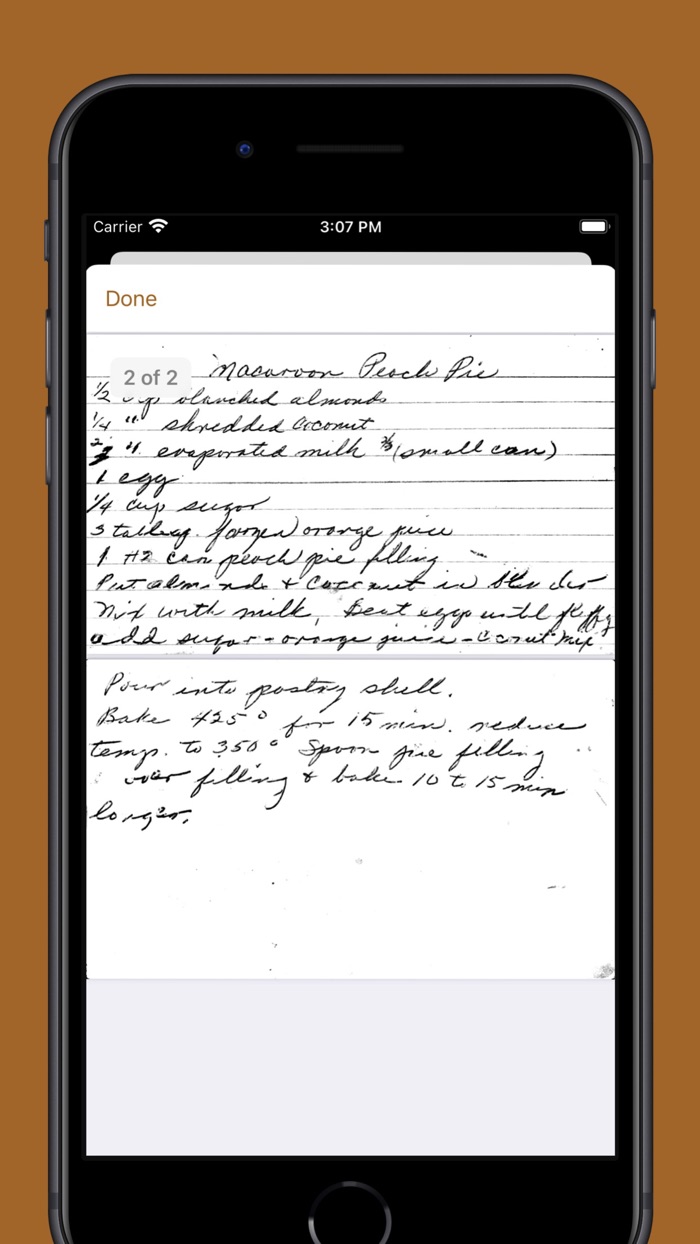 Carrier 3:07 PM
Done
2 of 2
Macaroon Peach Pie
1/2 cup blanched almonds
1/4 " shredded Coconut
" evaporated milk 2/3 (small can)
1 egg
1/4 cup sugar
3 frozen orange juice
1 #2 can peach pie filling
Put almonds + Coconut in blender
Mix with milk, Beat eggs until fluffy
add sugar - orange juice - mix
Pour into pastry shell.
Bake 425° for 15 min. reduce
temp. to 350° Spoon pie filling
over filling & bake 10 to 15 min
longer.